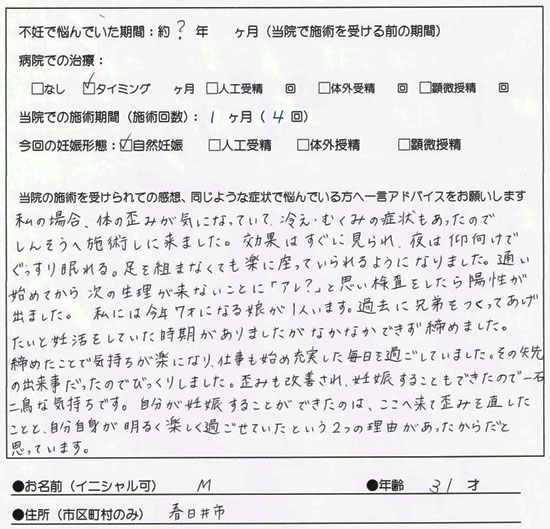 ●不妊で悩んでいた期間：約 ? 年　ヶ月（当院で施術を受ける前の期間）
病院での治療：
□なし　☑タイミング　ヶ月　□人工受精　回　□体外受精　回　□顕微授精　回
当院での施術期間（施術回数）：1 ヶ月（ 4 回）
今回の妊娠形態：☑自然妊娠　□人工受精　□体外授精　□顕微授精
当院の施術を受けられての感想、同じような症状で悩んでいる方へ一言アドバイスをお願いします
私の場合、体の歪みが気になっていて、冷え・むくみの症状もあったので
しんそうへ施術しに来ました。効果はすぐに見られ、夜は仰向けで
ぐっすり眠れる。足を組まなくても楽に座っていられるようになりました。通い
始めてから次の生理が来ないことに「アレ？」と思い検査をしたら陽性が
出ました。 私には今年7才になる娘が1人います。過去に兄弟をつくってあげ
たいと妊活をしていた時期がありましたがなかなかできず締めました。
締めたことで気持ちが楽になり、仕事も始め充実した毎日を過ごしていました。その矢先
の出来事だったのでびっくりしました。歪みも改善され、妊娠することもできたので一石
二鳥な気持ちです。自分が妊娠することができたのは、ここへ来て歪みを直した
ことと、自分自身が明るく楽しく過ごせていたという2つの理由があったからだと
思っています。
●お名前（イニシャル可）　M　●年齢　31 才
●住所（市区町村のみ）　春日井市